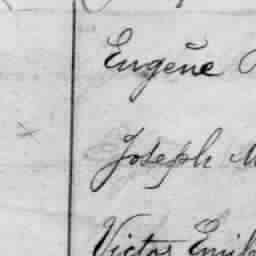 Eugène
Joseph M
Victor Emil